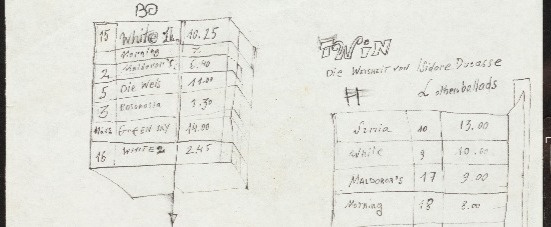 BO
15 White 1. 10.25
Morning 7
2 Maldoror's 6.40
5 Die Wels 11.00
3 1.30
Green Sky 14.00
16 White 2 2.45
TWiN
Die Weisheit von Isidore Ducasse
H
& other ballads
Sinia 10 13.00
White 9 10.00
Maldoror's 17 9.00
Morning 18 8.00